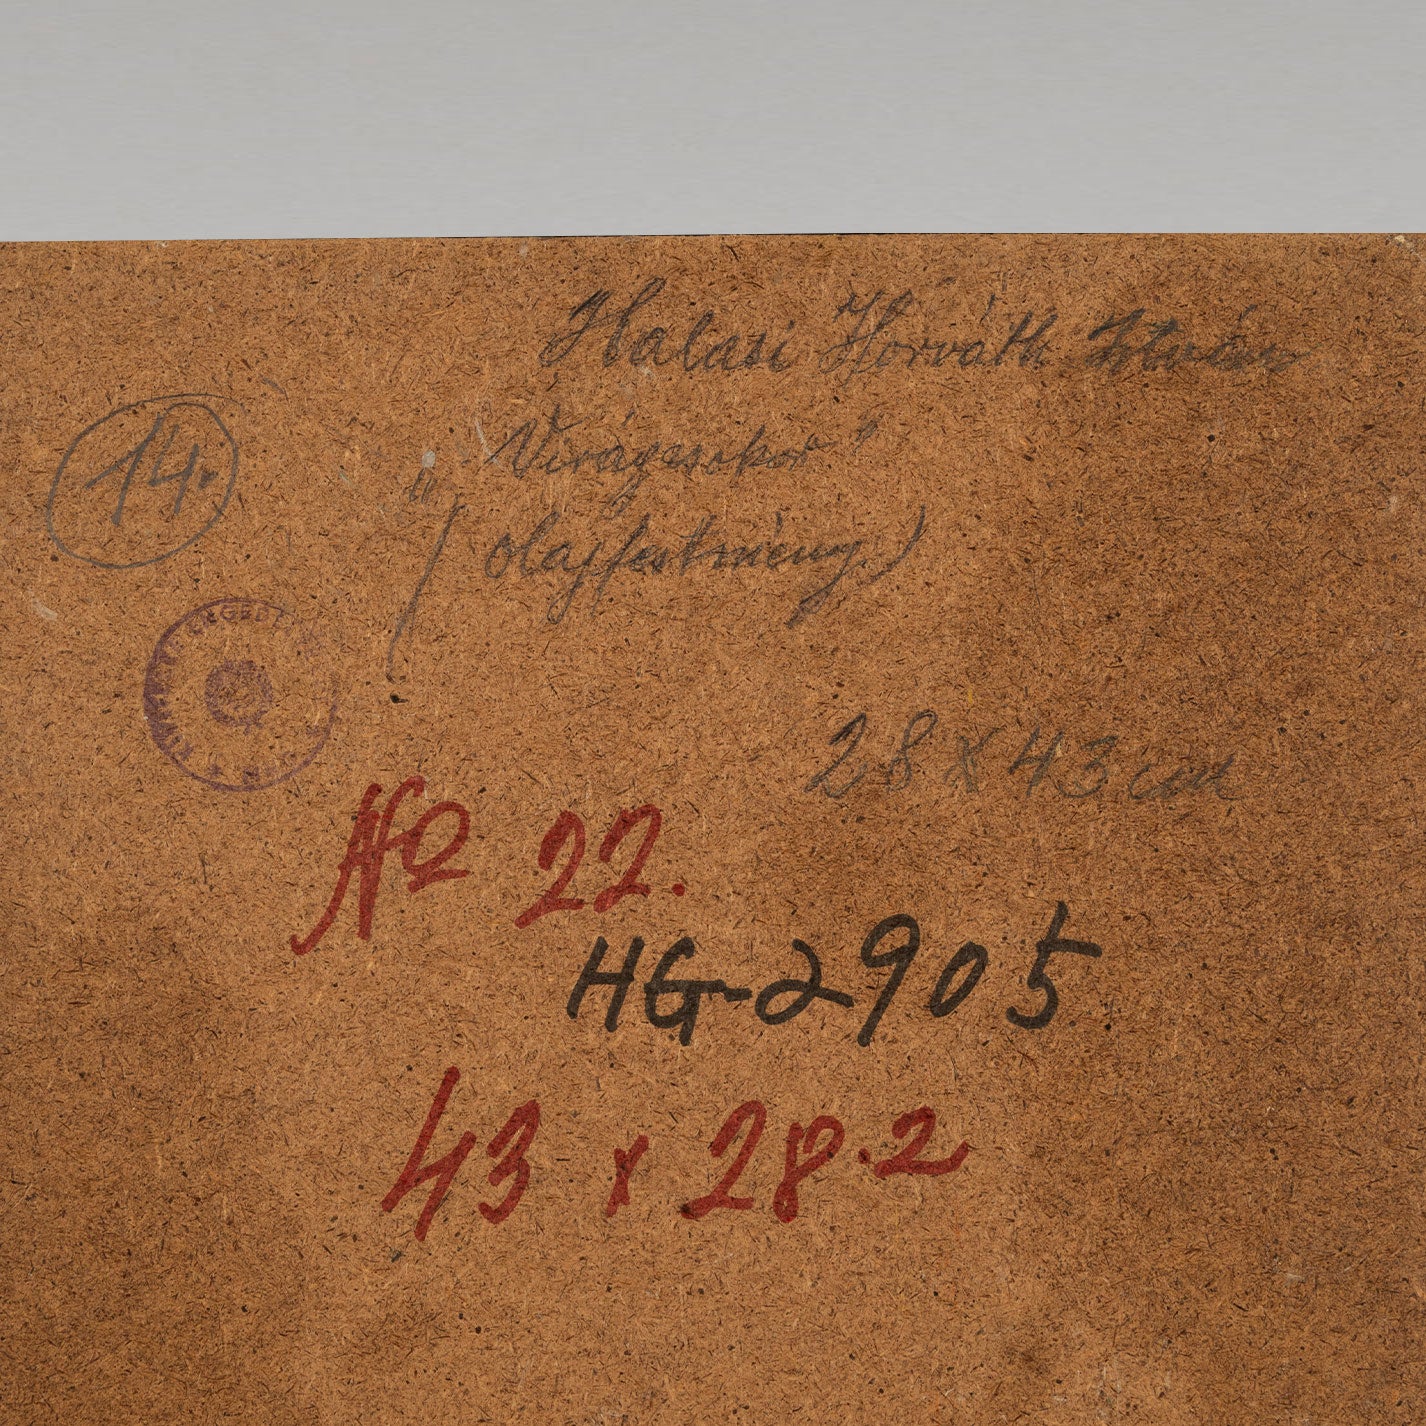 Halasi Horváth István
14.
„Virágcsokor"
(olajfestmény.)
28 x 43 cm
No 22.
HG-2905
43 x 28.2